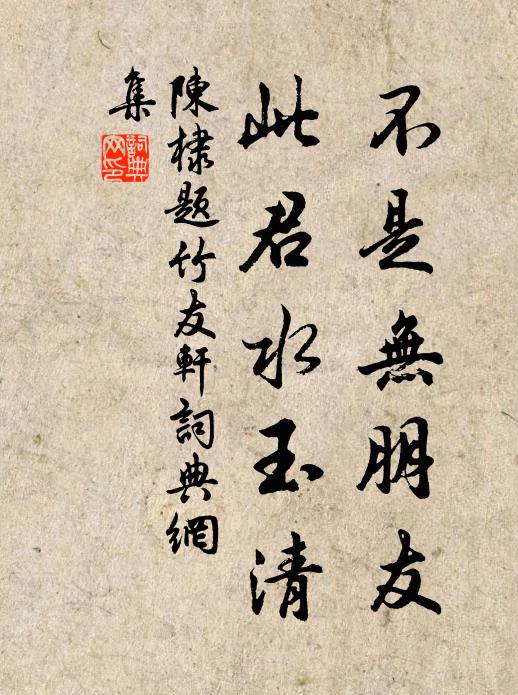 不是無朋友
此君水玉清
陳棣題竹友軒詞典網
集
詞典
网印